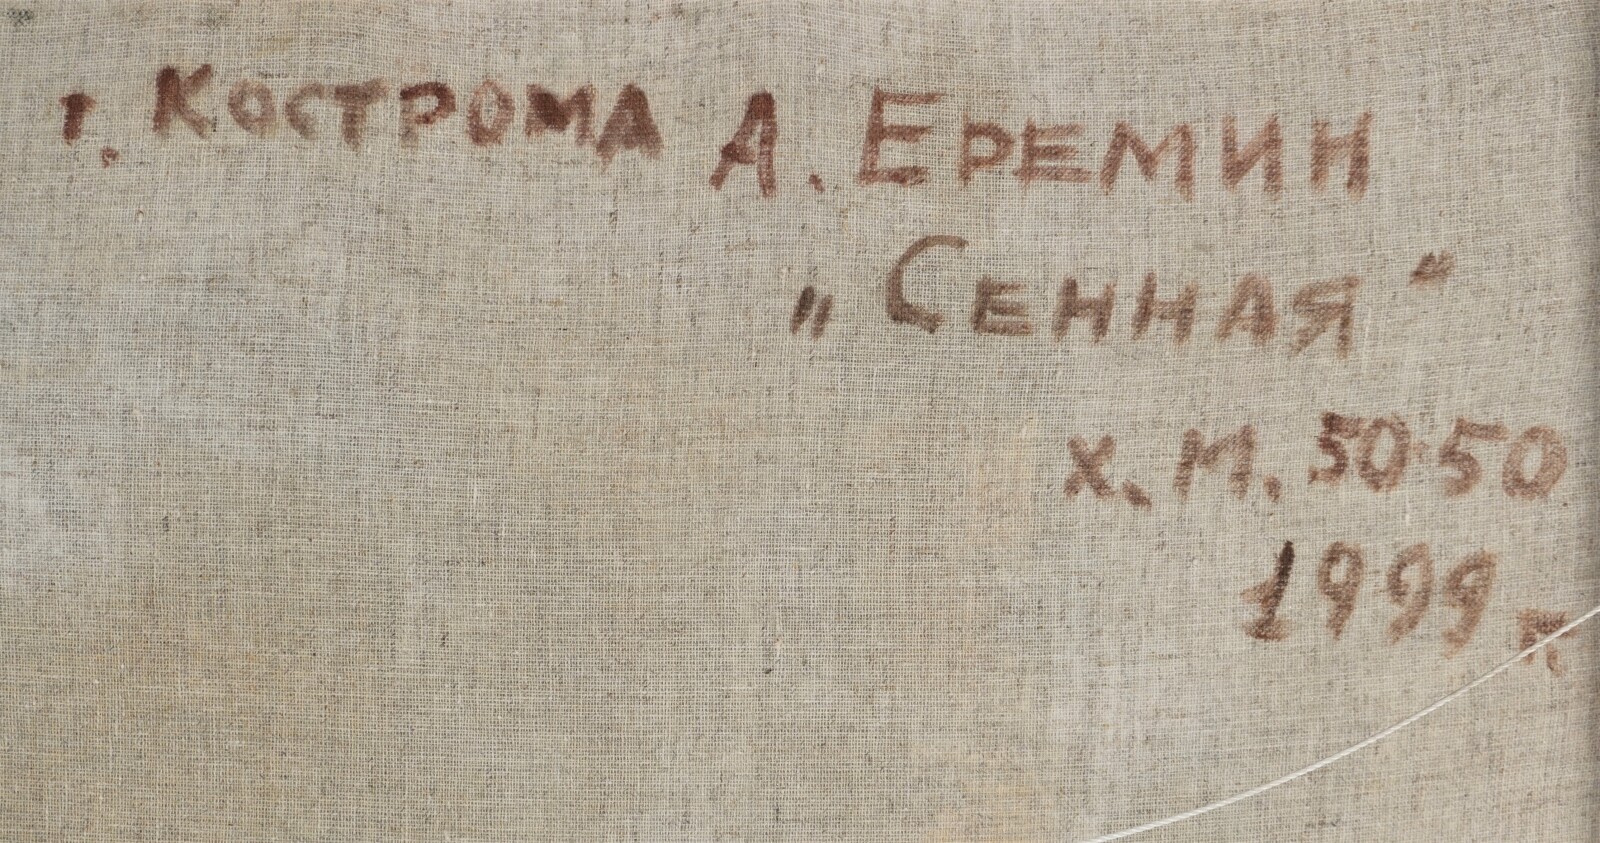 г. Кострома А. Еремин
„Сенная“
х. м. 50·50
1999 г.